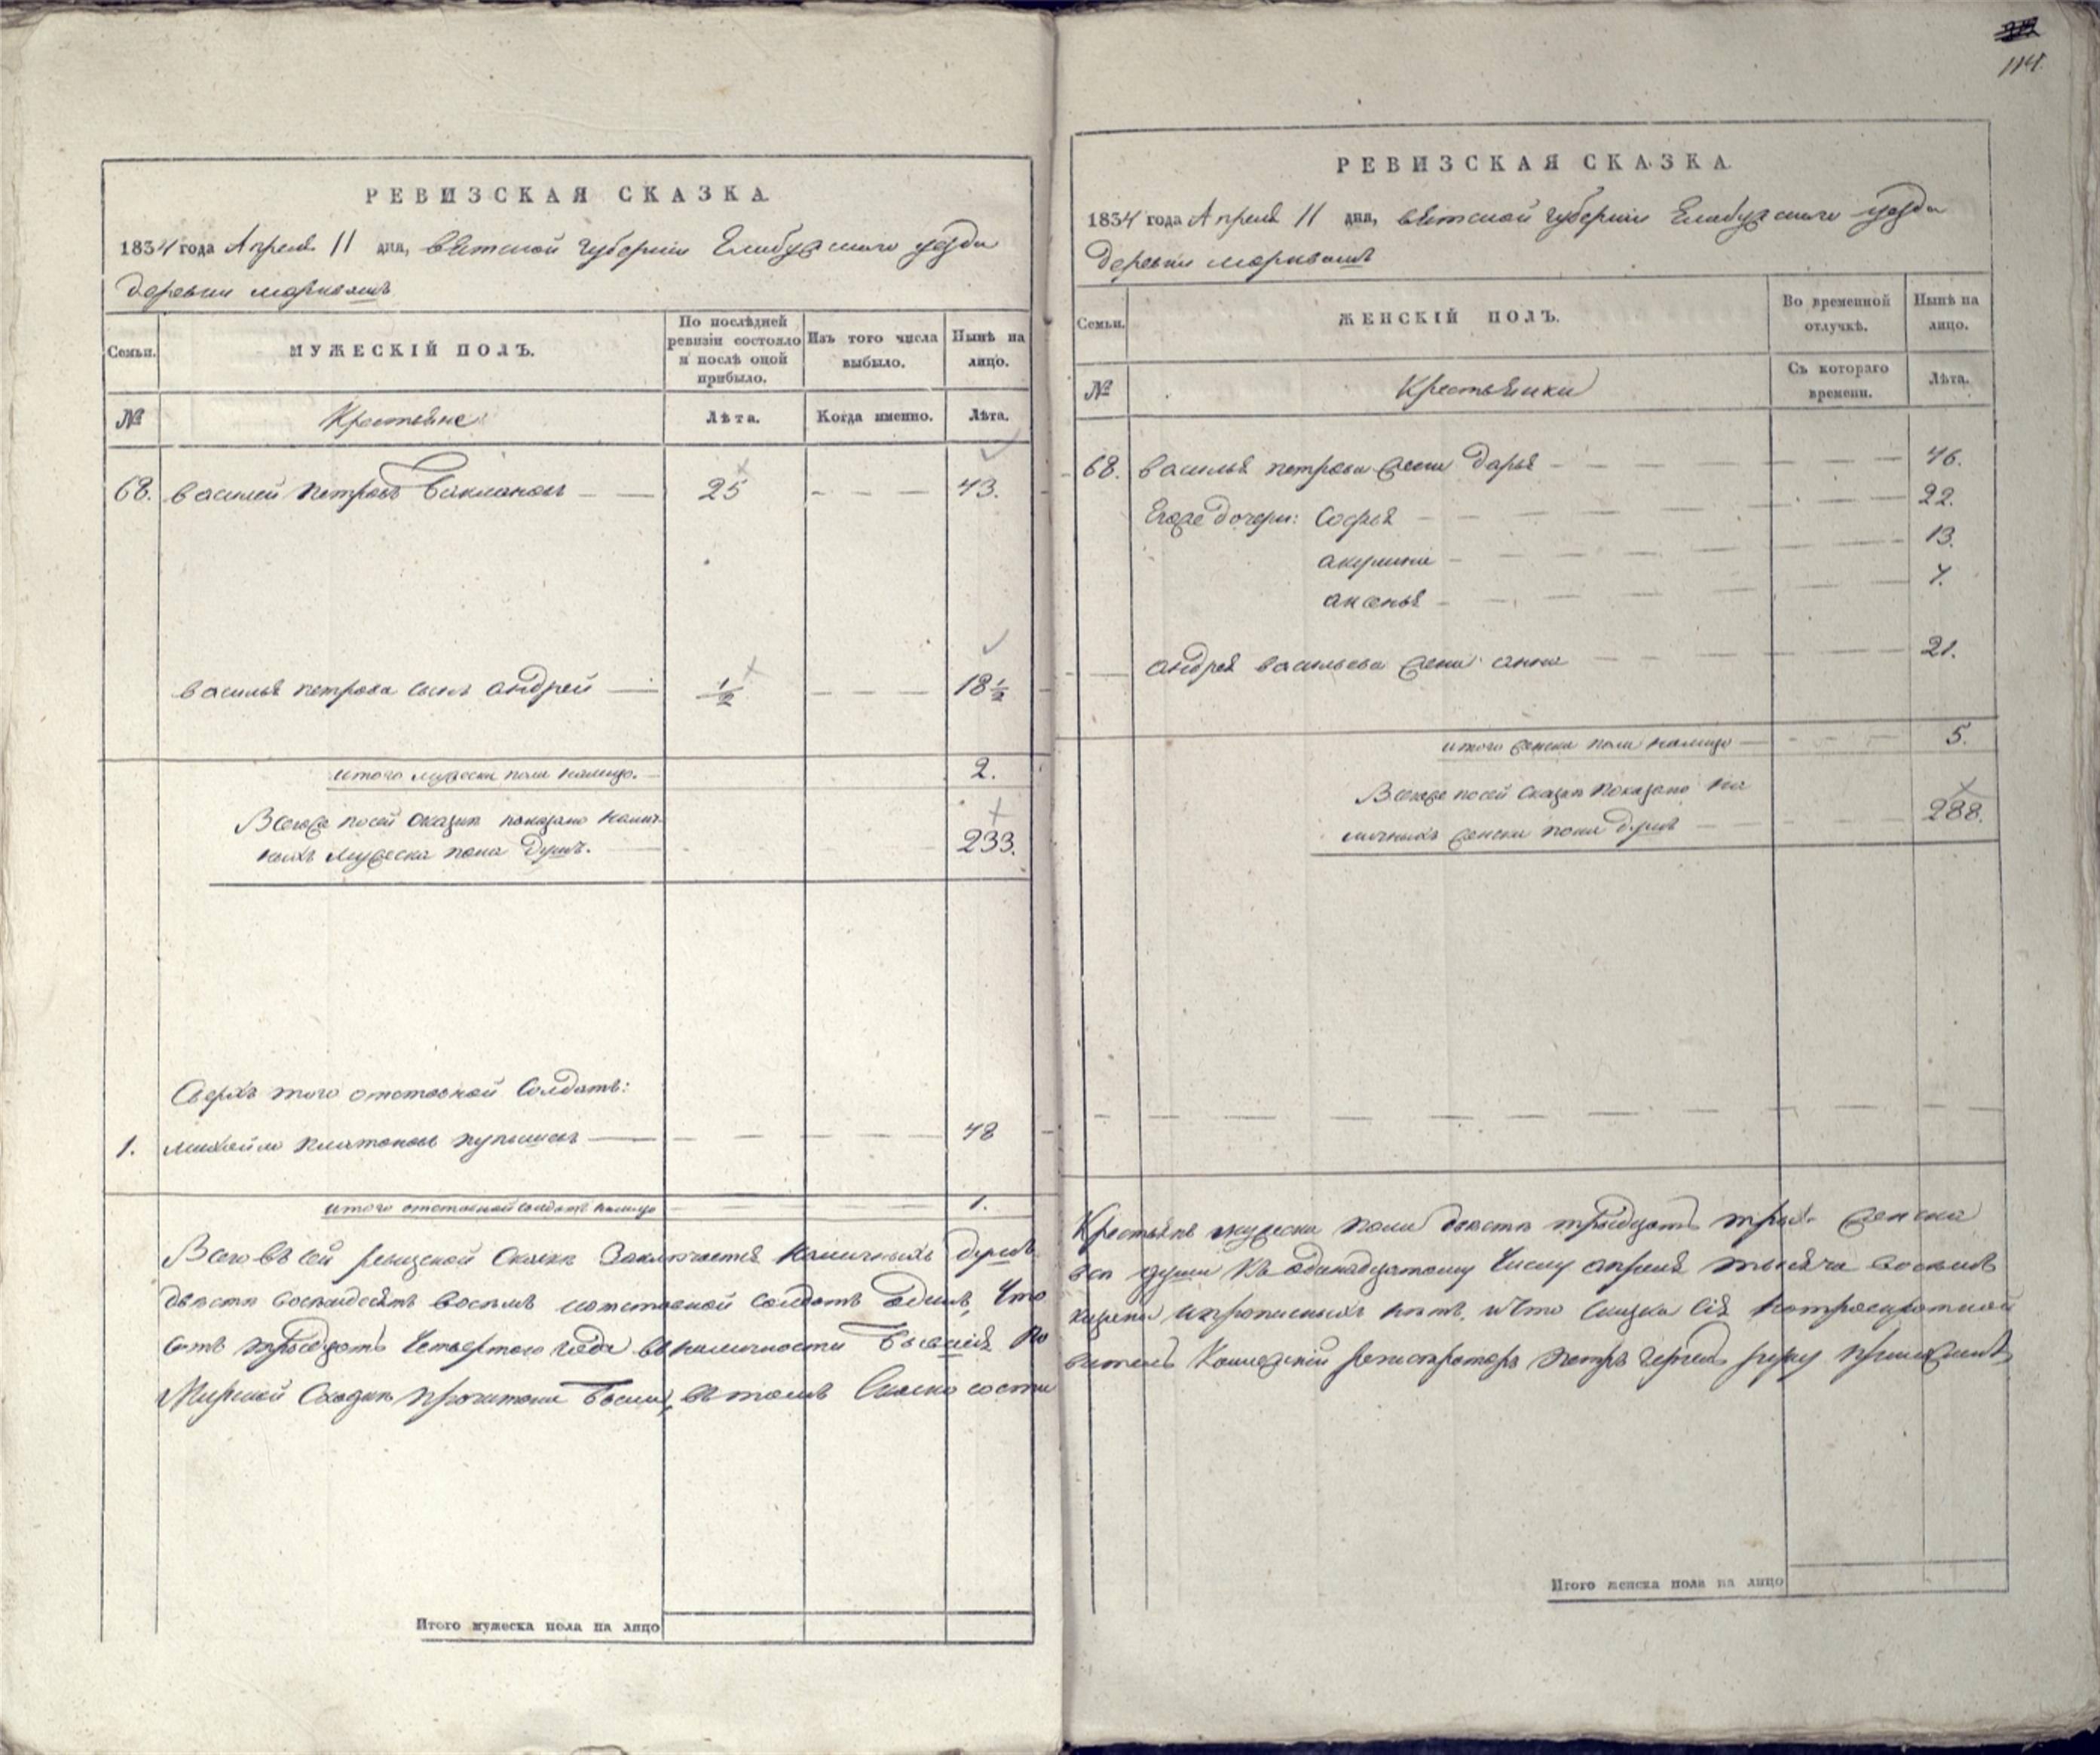 114.
РЕВИЗСКАЯ СКАЗКА.
1834 года Апреля 11 дня, вятской губернии Елабужскаго уезда
деревни моркваш
Семьи.
МУЖЕСКІЙ ПОЛЪ.
По послѣдней ревизіи состояло и послѣ оной прибыло.
Изъ того числа выбыло.
Нынѣ на лицо.
№
Крестьяне
Лѣта.
Когда именно.
Лѣта.
68. василей петровъ баклановъ 25 43.
василья петрова сынъ андрей ½ 18½
итого мужеска пола налицо. 2.
Всегоже посей сказкѣ показано налич-
ныхъ мужеска пола душъ. 233.
Сверхъ того отставной Солдатъ:
1. михайло платоновъ 48
итого отставной солдатъ налицо 1.
Всего въ сей ревизской сказкѣ Заключается наличныхъ душъ
двѣсти восемдесятъ восемь иотставной солдатъ одинъ, Что
сотъ тридцать Четвертого года въ наличности бывшія
Мирской Сходкѣ прочитана была, въ томъ Сказко соста
Итого мужеска пола на лицо
РЕВИЗСКАЯ СКАЗКА.
1834 года Апреля 11 дня, вятской губернии Елабужскаго уезда
деревни моркваш
Семьи.
ЖЕНСКІЙ ПОЛЪ.
Во временной отлучкѣ.
Нынѣ на лицо.
№
Крестьянки
Съ котораго времени.
Лѣта.
68. василья петрова жена дарья 46.
Егоже дочери: Софья 22.
акулина 13.
аксенья 7.
андрея васильева жена анна 21.
итого женска пола налицо 5.
Всегоже посей сказкѣ показано на
личныхъ женска пола душъ 288.
Крестьянъ мужеска пола двѣсти тридцать три женска
души къ одинадцатому Числу апреля тысяча восемь
ипрописныхъ нѣтъ, ичто сказка сія
витель Колежскій регистраторъ петръ руку приложилъ
Итого женска пола на лицо